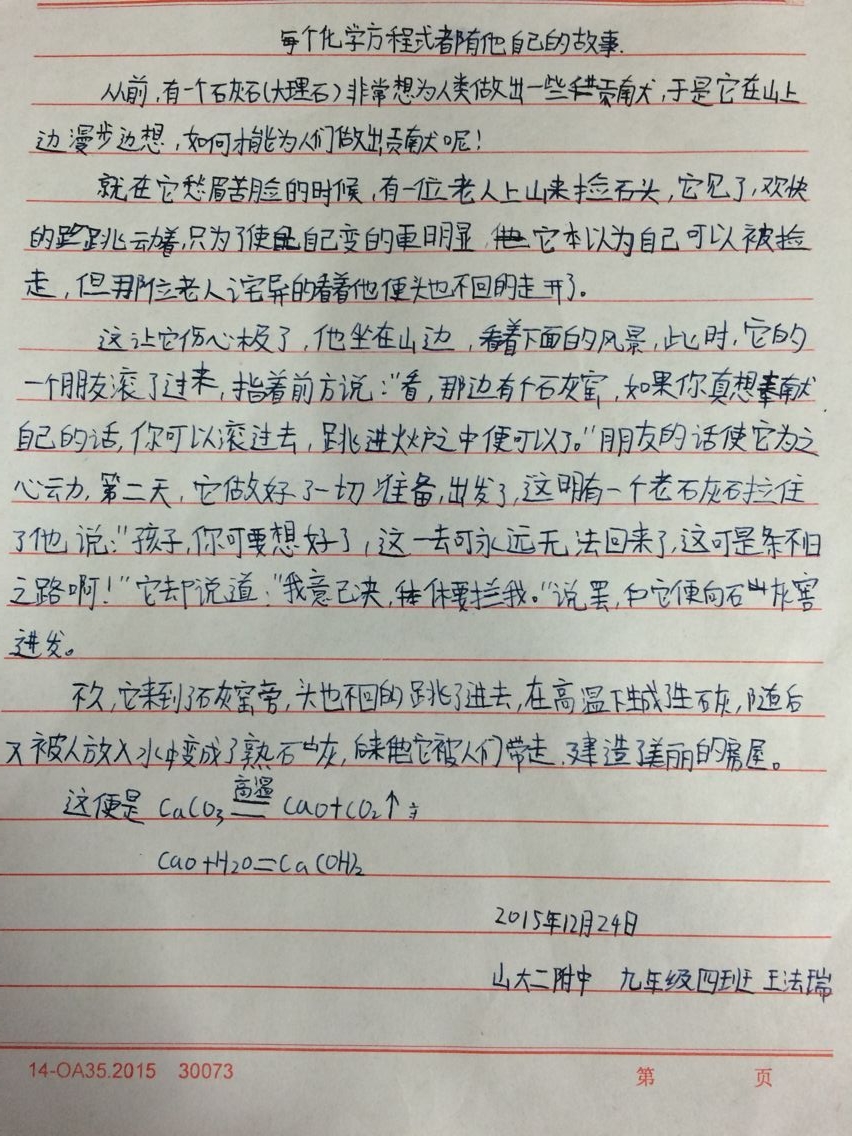 每个化学方程式都有他自己的故事.
从前,有一个石灰石(大理石)非常想为人类做出一些贡献,于是它在山上
边漫步边想,如何才能为人们做出贡献呢!
就在它愁眉苦脸的时候,有一位老人上山来捡石头,它见了,欢快
的跳动着,只为了使自己变的更明显,它本以为自己可以被捡
走,但那位老人诧异的看着他便头也不回的走开了。
这让它伤心极了,他坐在山边,看着下面的风景,此时,它的
一个朋友滚了过来,指着前方说:“看,那边有个石灰窑,如果你真想奉献
自己的话,你可以滚过去,跳进火炉之中便可以了。”朋友的话使它为之
心动,第二天,它做好了一切准备,出发了,这时有一个老石灰石拉住
了他,说:“孩子,你可要想好了,这一去可永远无法回来了,这可是条不归
之路啊!”它却说道:“我意已决,休要拦我。”说罢,它便向石灰窑
进发。
不久,它来到了石灰窑旁,头也不回的跳了进去,在高温下生成了生石灰,随后
又被人放入水中变成了熟石灰,后来它被人们带走,建造了美丽的房屋。
这便是 CaCO₃ 高温═ CaO+CO₂↑;
CaO+H₂O=Ca(OH)₂
2015年12月24日
山大二附中 九年级四班 王法瑞
14-OA35.2015 30073 第 页